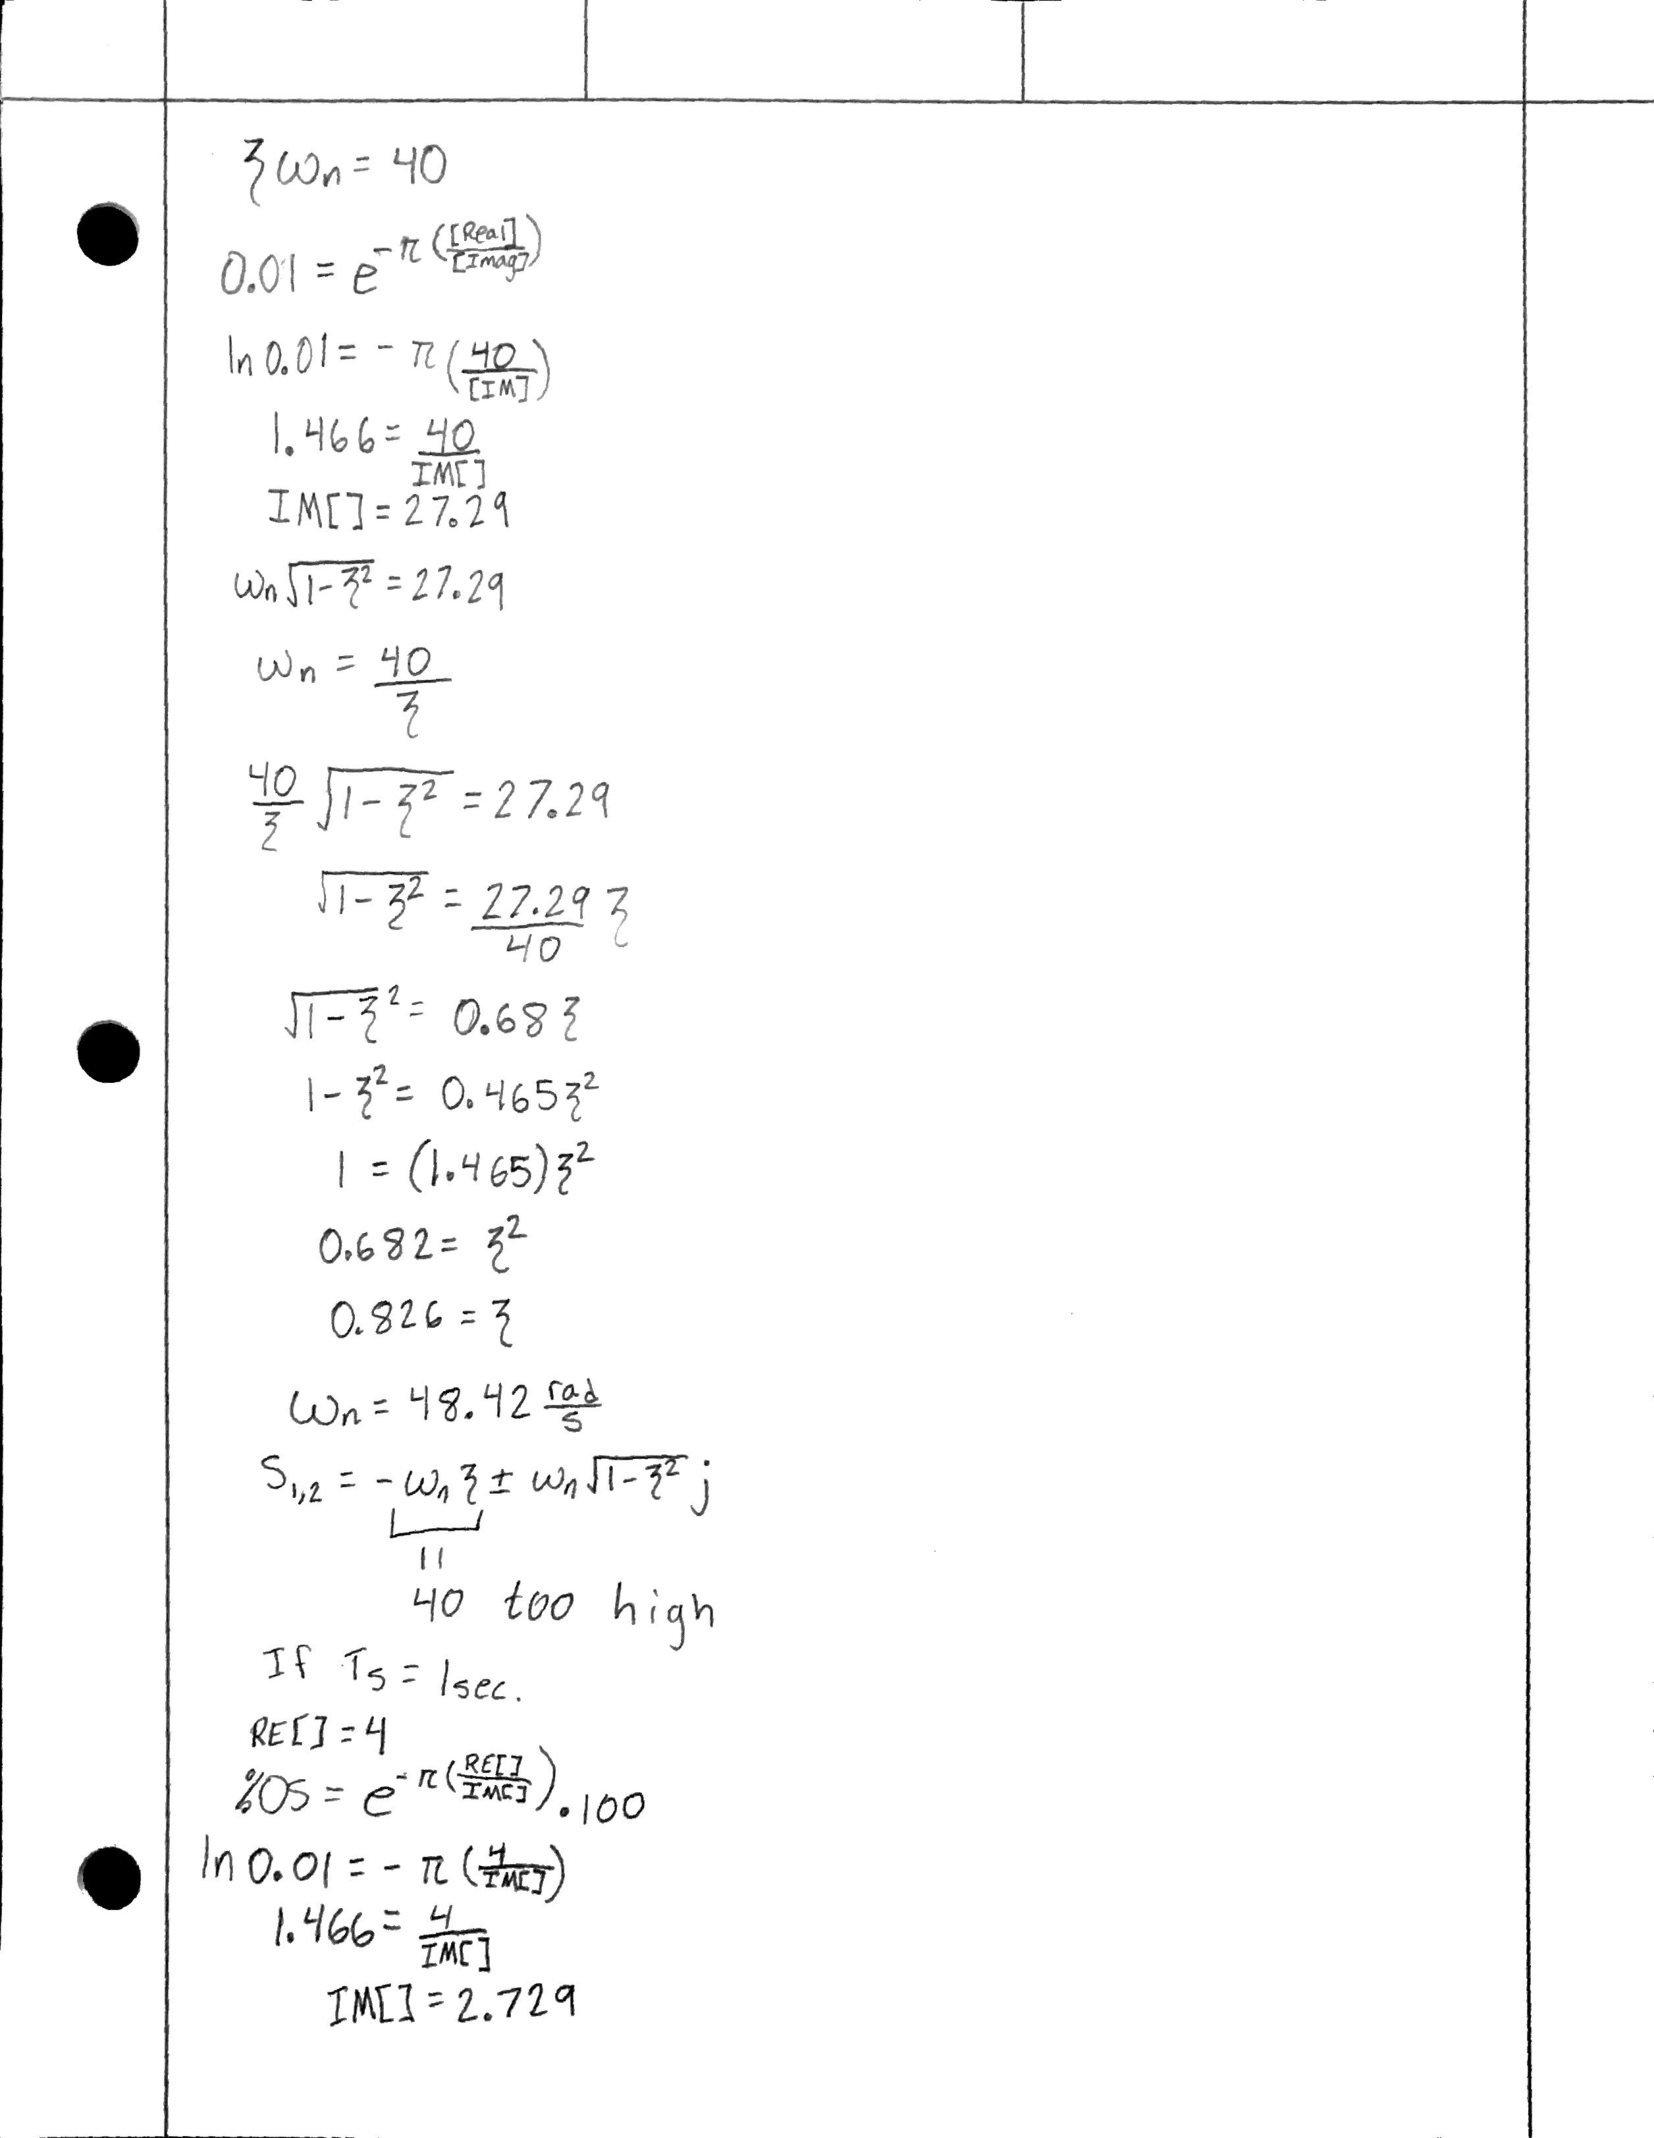 ξωn = 40
0.01 = e^-π([Real]/[Imag])
ln 0.01 = - π(40/[IM])
1.466 = 40/IM[]
IM[] = 27.29
ωn√(1-ξ²) = 27.29
ωn = 40/ξ
40/ξ √(1-ξ²) = 27.29
√(1-ξ²) = 27.29/40 ξ
√(1-ξ)² = 0.68ξ
1-ξ² = 0.465ξ²
1 = (1.465)ξ²
0.682 = ξ²
0.826 = ξ
ωn = 48.42 rad/s
S1,2 = -ωnξ ± ωn√(1-ξ²) j
||
40 too high
If Ts = 1sec.
RE[] = 4
%OS = e^-π(RE[]/IM[]) . 100
ln 0.01 = - π(4/IM[])
1.466 = 4/IM[]
IM[] = 2.729